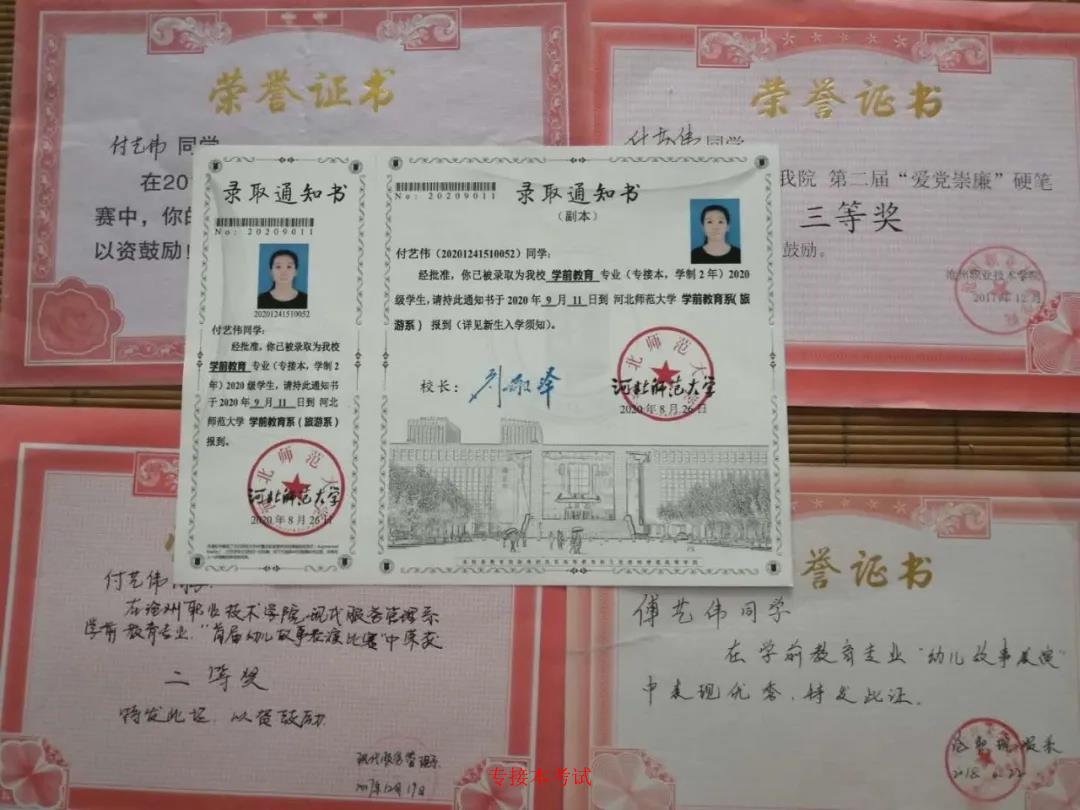 荣誉证书
付艺伟 同学
在20
赛中，你的
以资鼓励！
荣誉证书
付艺伟同学
我院 第二届“爱党崇廉”硬笔
三等奖
鼓励。
沧州职业技术学院
2017年12月
录取通知书
No: 20209011
20201241510052
付艺伟同学：
经批准，你已被录取为我校
学前教育 专业（专接本，学制2
年）2020级学生，请持此通知书
于2020年9月11日到 河北
师范大学 学前教育系（旅游系）
报到。
河北师范大学
2020年8月26日
No: 20209011
录取通知书
（副本）
付艺伟（20201241510052）同学：
经批准，你已被录取为我校 学前教育 专业（专接本，学制2年）2020
级学生，请持此通知书于2020年9月11日到 河北师范大学 学前教育系（旅
游系） 报到（详见新生入学须知）。
校长：
河北师范大学
2020年8月26日
付艺伟同学：
在沧州职业技术学院现代服务管理系
学前教育专业，“首届幼儿故事表演比赛”中荣获
二等奖
特发此证，以资鼓励
现代服务管理系
2017年12月19日
誉证书
傅艺伟同学
在学前教育专业“幼儿故事表演”
中表现优秀，特发此证。
2018.6.22
专接本考试